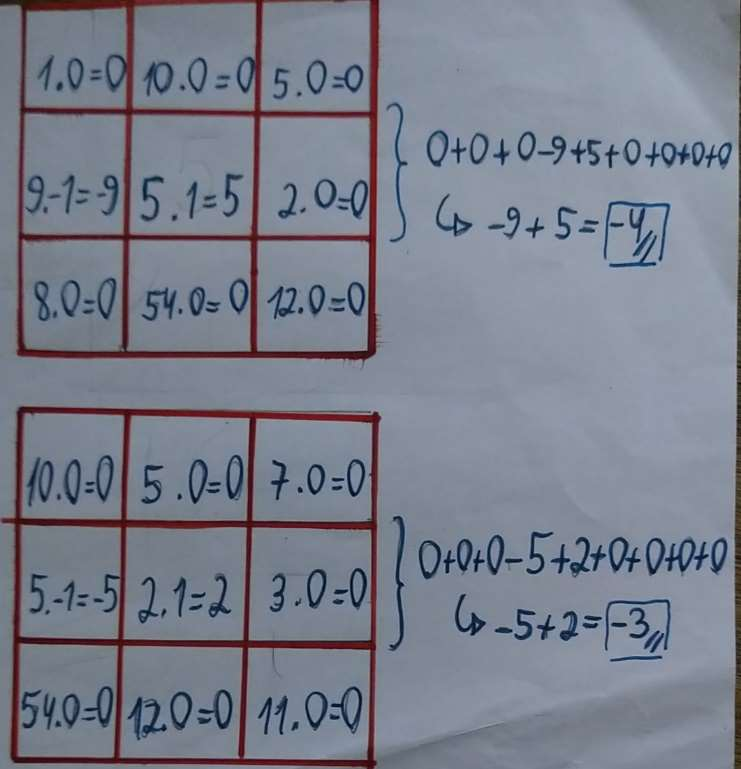 1.0=0 10.0=0 5.0=0
9.-1=-9 5.1=5 2.0=0
8.0=0 54.0=0 12.0=0
0+0+0-9+5+0+0+0+0
↳ -9+5=-4
10.0=0 5.0=0 7.0=0
5.-1=-5 2.1=2 3.0=0
54.0=0 12.0=0 11.0=0
0+0+0-5+2+0+0+0+0
↳ -5+2=-3